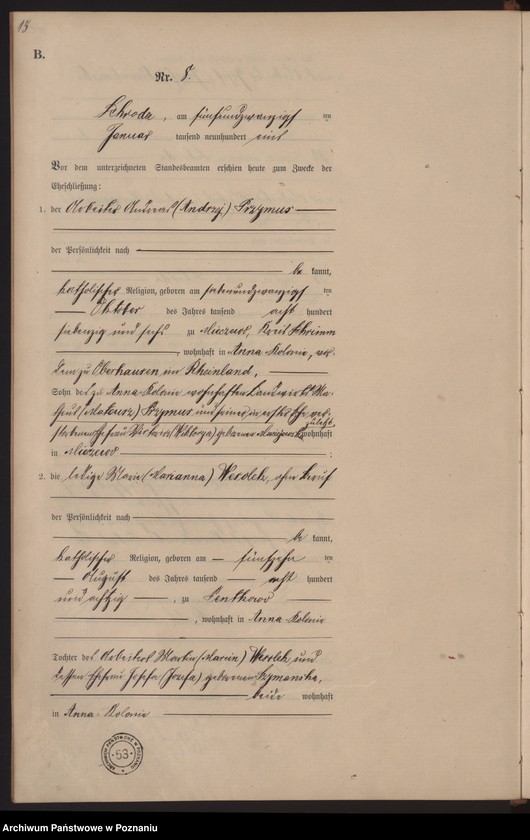 15
B.
Nr. 8.
Schroda, am fünfundzwanzigsten
Januar tausend neunhundert eins
Vor dem unterzeichneten Standesbeamten erschien heute zum Zwecke der
Eheschließung:
1. der Arbeiter Andreas (Andrzej) Przymus
der Persönlichkeit nach
be kannt,
katholischer Religion, geboren am siebenundzwanzigsten
Oktober des Jahres tausend acht hundert
siebenzig und sechs zu Kreis Schrimm
, wohnhaft in Anna-Kolonie,
zu Oberhausen im Rheinland,
Sohn des zu Anna-Kolonie wohnhaften Landwirts Ma-
theus (Mateusz) Przymus und seiner in erster Ehe ver-
storbenen Ehefrau Victoria (Wiktorya) geborenen zuletzt wohnhaft
in ;
2. die ledige Marie (Marianna) Werdek, ohne Beruf
der Persönlichkeit nach
be kannt,
katholischer Religion, geboren am fünfzehnten
August des Jahres tausend acht hundert
und achtzig , zu Pentkowo
, wohnhaft in Anna-Kolonie
Tochter des Arbeiters Martin (Marcin) Werdek und
dessen Ehefrau Josefa (Józefa) geborenen Szymanska,
beide wohnhaft
in Anna-Kolonie
ARCHIWUM PAŃSTWOWE W POZNANIU
53
Archiwum Państwowe w Poznaniu